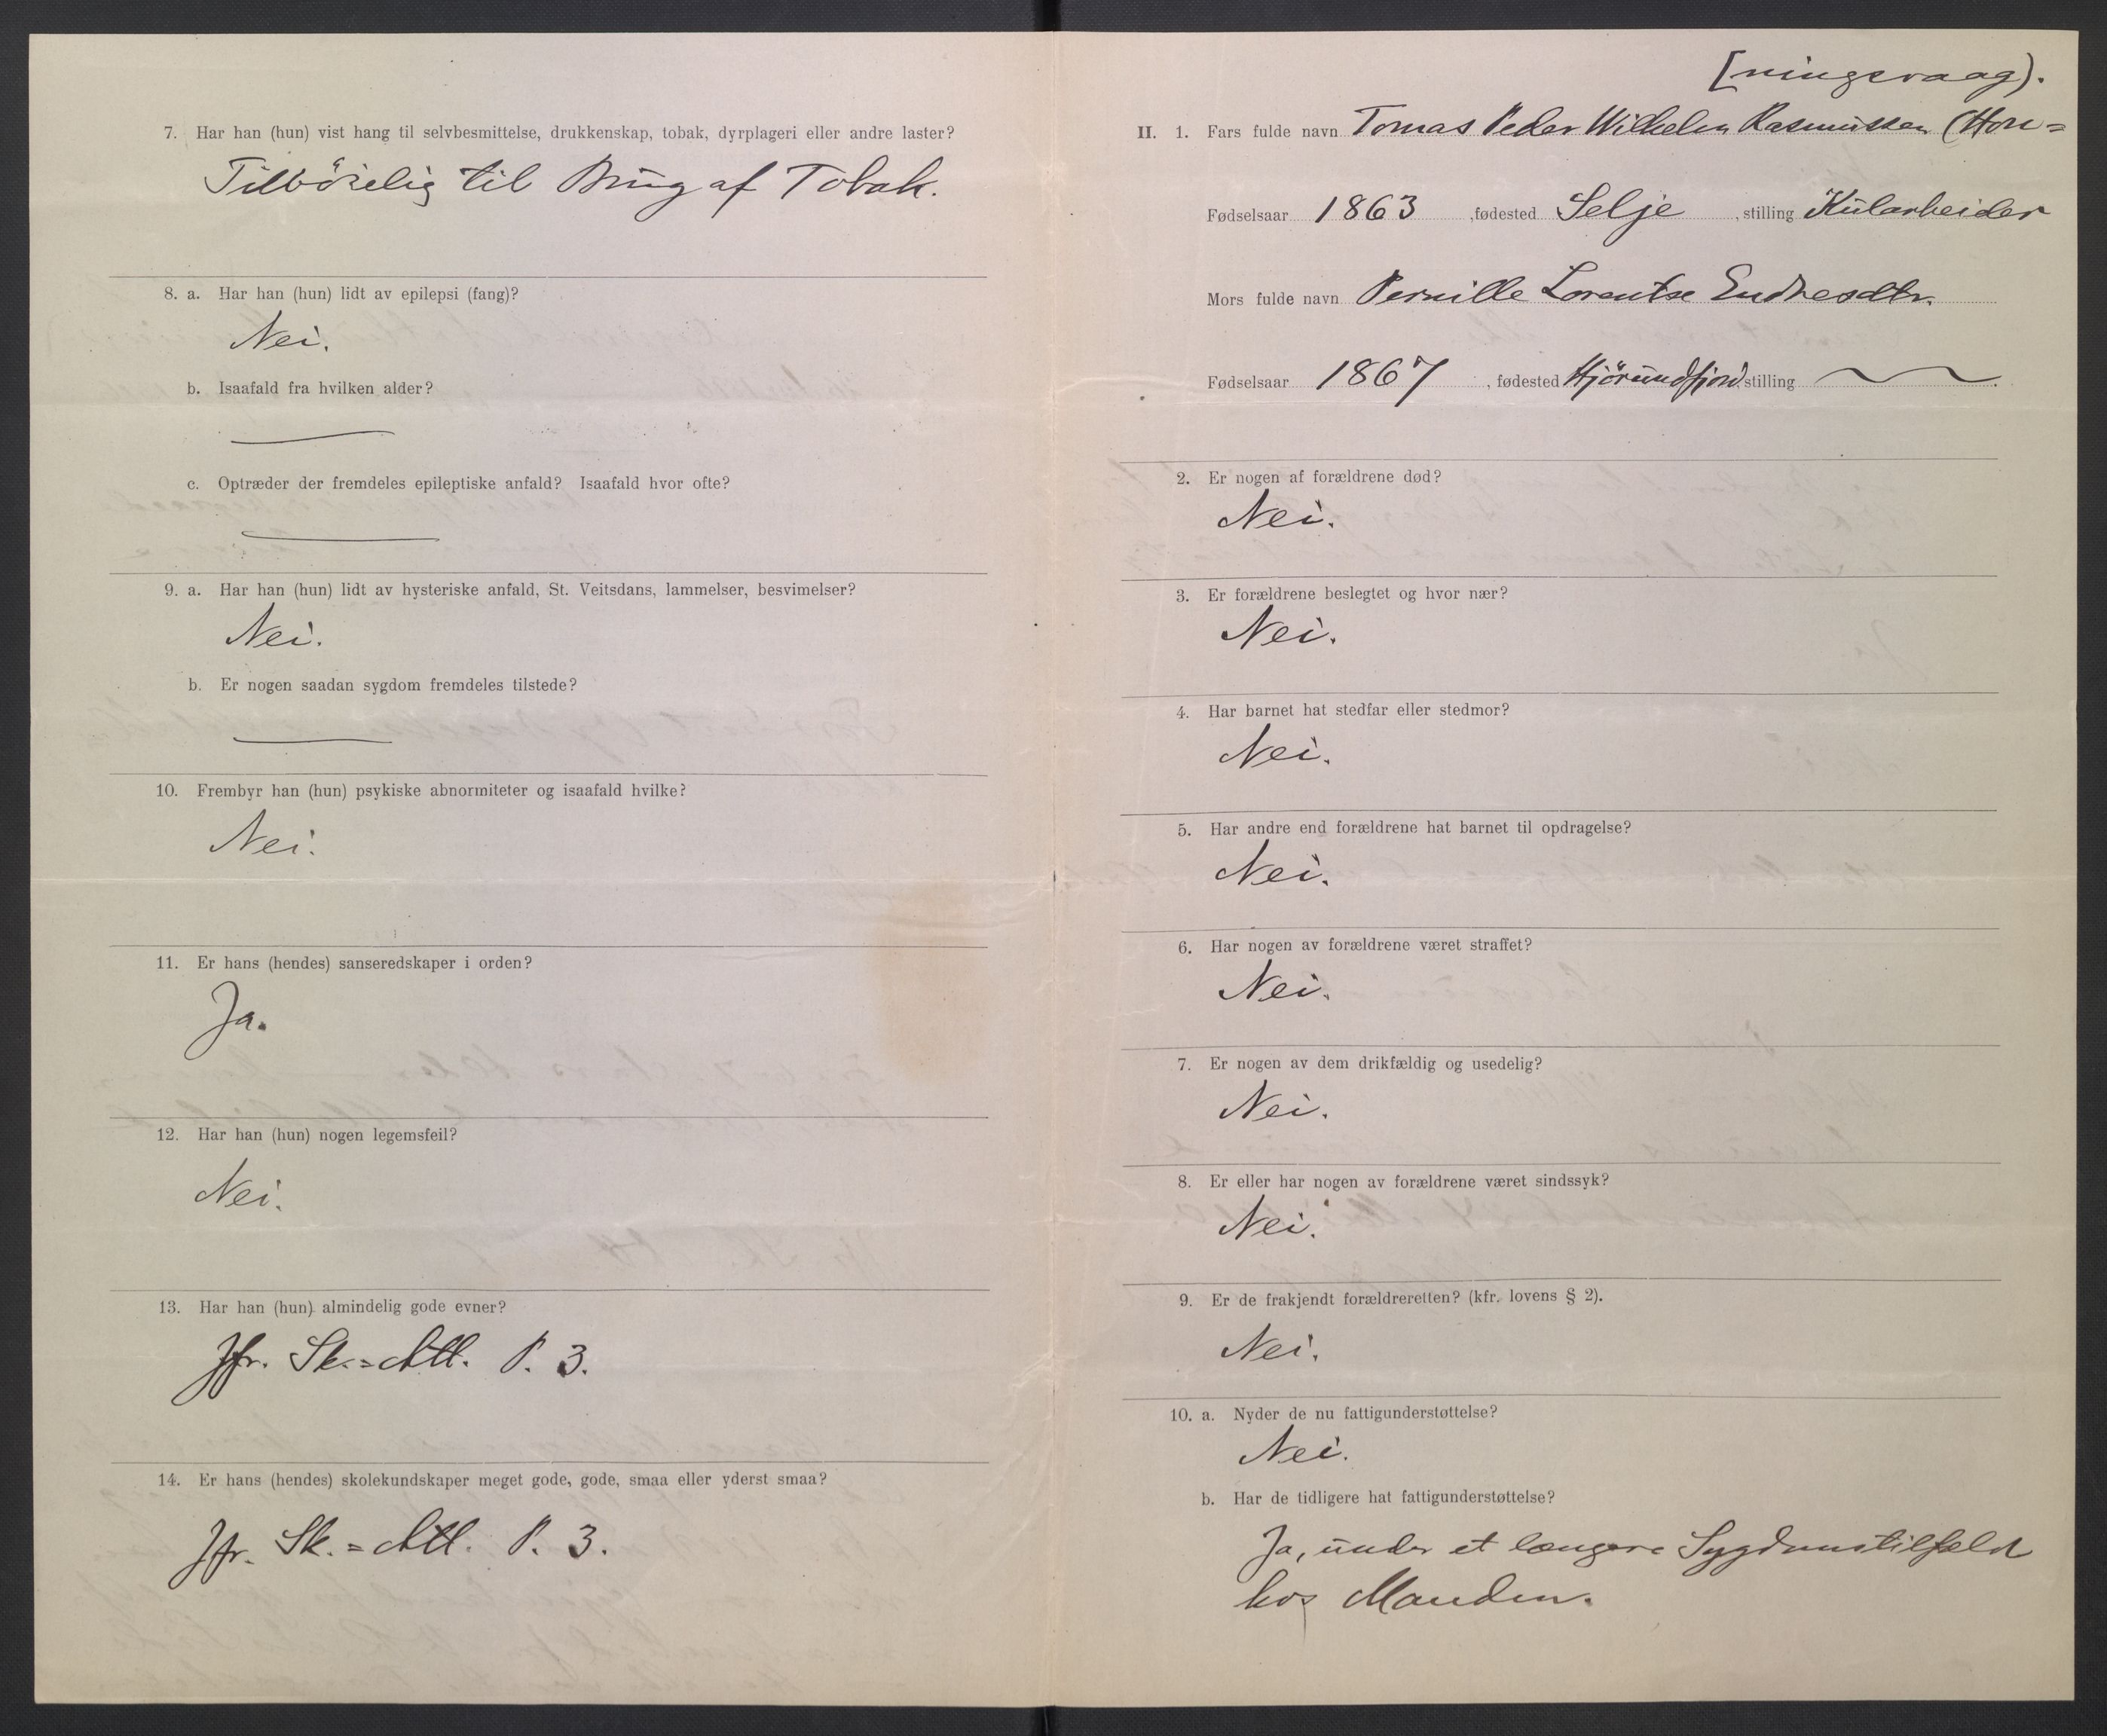 7. Har han (hun) vist hang til selvbesmittelse, drukkenskap, tobak, dyrplageri eller andre laster?
Tilböielig til Brug af Tobak.
8. a. Har han (hun) lidt av epilepsi (fang)?
Nei.
b. Isaafald fra hvilken alder?
c. Optræder der fremdeles epileptiske anfald? Isaafald hvor ofte?
9. a. Har han (hun) lidt av hysteriske anfald, St. Veitsdans, lammelser, besvimelser?
Nei.
b. Er nogen saadan sygdom fremdeles tilstede?
10. Frembyr han (hun) psykiske abnormiteter og isaafald hvilke?
Nei.
11. Er hans (hendes) sanseredskaper i orden?
Ja.
12. Har han (hun) nogen legemsfeil?
Nei.
13. Har han (hun) almindelig gode evner?
Jfr. Sk.=Att. P. 3.
14. Er hans (hendes) skolekundskaper meget gode, gode, smaa eller yderst smaa?
Jfr. Sk.=Att. P. 3.
[ningsvaag).
II. 1. Fars fulde navn Tomas Peder Wilhelm Rasmussen (Hon=
Fødselsaar 1863, fødested Selje, stilling Kularbeider
Mors fulde navn Pernille Lorentse Endresdtr.
Fødselsaar 1867, fødested Hjörundfjord stilling
2. Er nogen af forældrene død?
Nei.
3. Er forældrene beslegtet og hvor nær?
Nei.
4. Har barnet hat stedfar eller stedmor?
Nei.
5. Har andre end forældrene hat barnet til opdragelse?
Nei.
6. Har nogen av forældrene været straffet?
Nei.
7. Er nogen av dem drikfældig og usedelig?
Nei.
8. Er eller har nogen av forældrene været sindssyk?
Nei.
9. Er de frakjendt forældreretten? (kfr. lovens § 2).
Nei.
10. a. Nyder de nu fattigunderstøttelse?
Nei.
b. Har de tidligere hat fattigunderstøttelse?
Ja, under et længere Sygdomstilfæld
hos Manden.